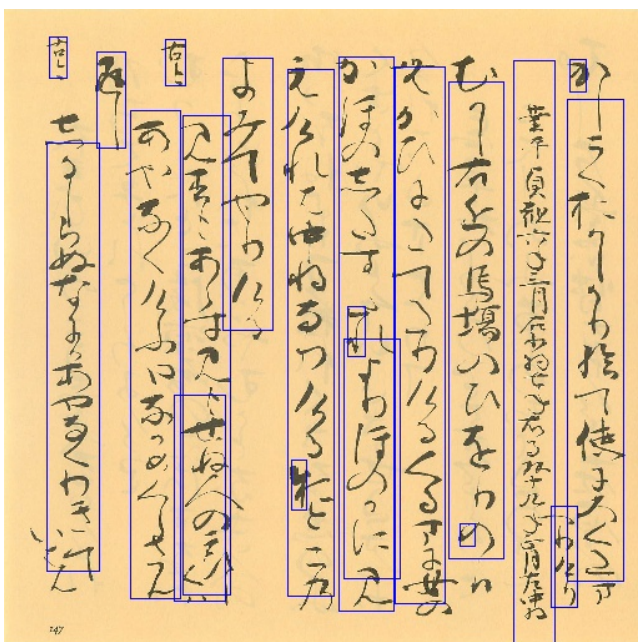 かしこくおかしかり給て使にろくたまへりけり
業平貞観六年三月左少将七年右馬頭十九年正月左中将
むかし右近の馬場のひをりの日
むかひにたてたりけるくるまに女の
かほのしたすたれよりほのかに見
えけれは中将なりけるおとこの
よみてやりける
古今
見すもあらす見もせぬ人のこひしくは
あやなくけふやなかめくらさん
返し
古今
しるしらぬなにかあやなくわきていはん
147